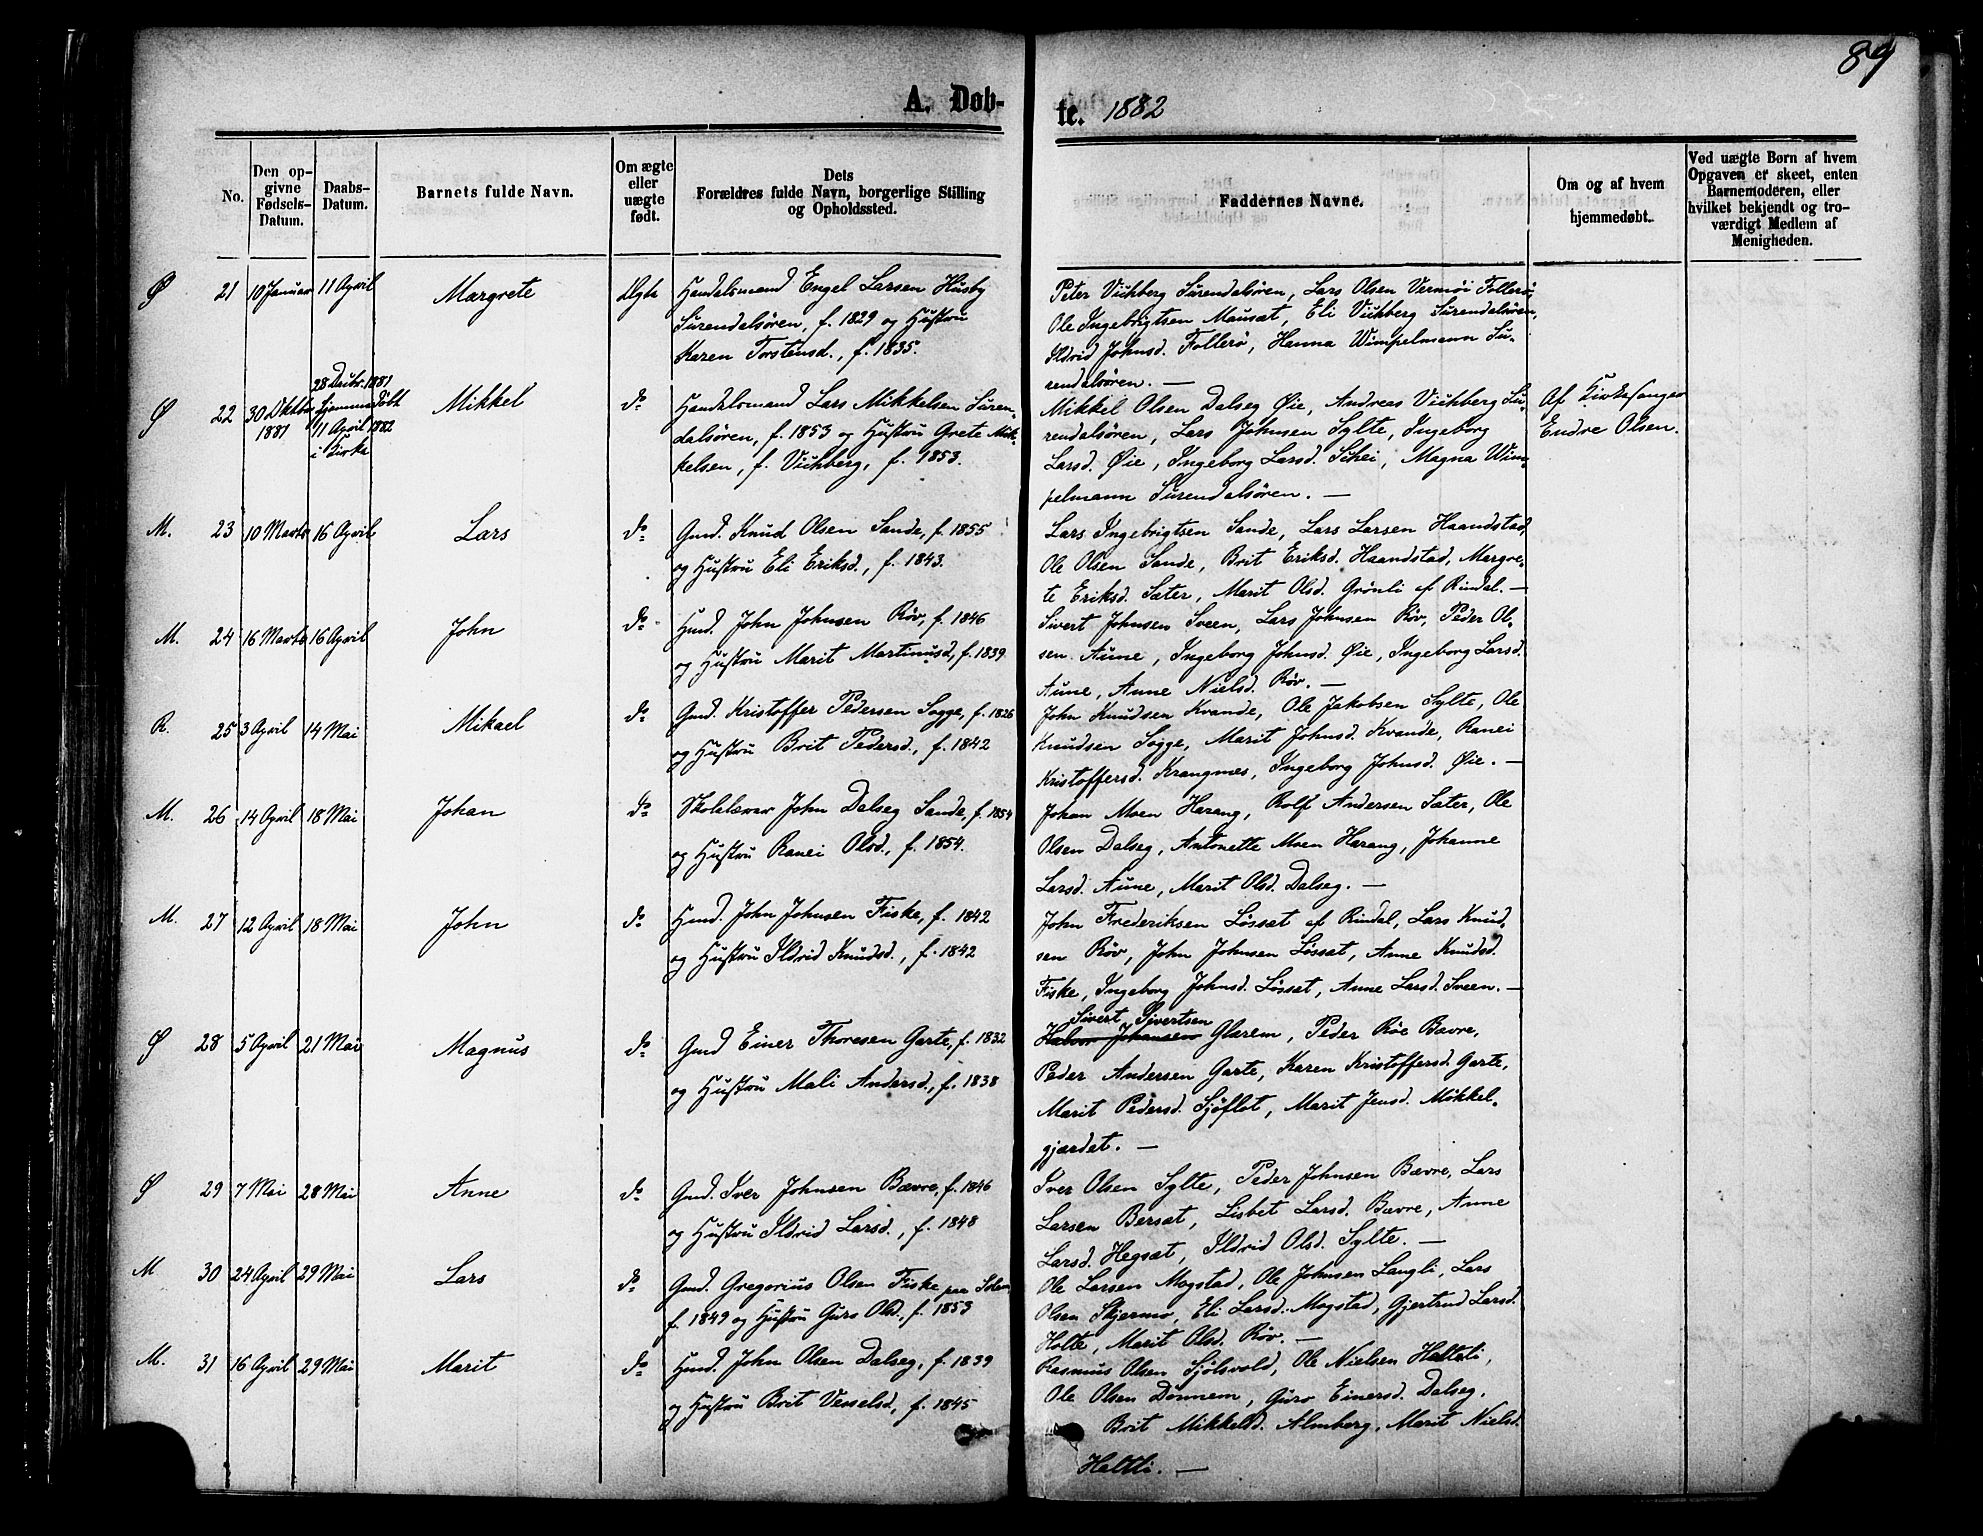 89
A. Døb-
te. 1882
No.
Den op-
givne
Fødsels-
Datum.
Daabs-
Datum.
Barnets fulde Navn.
Om ægte
eller
uægte
født.
Dets
Forældres fulde Navn, borgerlige Stilling
og Opholdssted.
Faddernes Navne.
Om og af hvem
hjemmedøbt.
Ved uægte Børn af hvem
Opgaven er skeet, enten
Barnemoderen, eller
hvilket bekjendt og tro-
værdigt Medlem af
Menigheden.
Ø 21 10 Januar 11 April Margrete Ægte Handelsmand Engel Larsen Husby
Surendalsøren, f. 1829 og Hustru
Karen Torstensd., f. 1835.
Peter Vichberg Surendalsøren, Lars Olsen Vermøi Follerø,
Ole Ingebrigtsen Mausæt, Eli Vichberg Surendalsøren,
Ildrid Johnsd. Follerø, Hanna Wimpelmann Su-
rendalsøren. —
Ø 22 30 Oktbr. 1881
28 Decbr. 1881
Hjemmedøbt
11 April 1882
i Kirke
Mikkel do Handelsmand Lars Mikkelsen Suren-
dalsøren, f. 1853 og Hustru Grete Mik-
kelsen, f. Vichberg, f. 1853.
Mikkel Olsen Dalseg Øie, Andreas Vichberg Su-
rendalsøren, Lars Johnsen Sylte, Ingeborg
Larsd. Øie, Ingeborg Larsd. Schei, Magna Wim-
pelmann Surendalsøren. —
Af Kirkesanger
Endre Olsen.
M. 23 10 Marts 16 April Lars do Gmd. Knud Olsen Sande, f. 1855
og Hustru Eli Eriksd., f. 1843.
Lars Ingebrigtsen Sande, Lars Larsen Haandstad,
Ole Olsen Sande, Brit Eriksd. Haandstad, Margre-
te Eriksd. Sæter, Marit Olsd. Grønli af Rindal. —
M. 24 16 Marts 16 April John do Hmd. John Johnsen Røv, f. 1846
og Hustru Marit Martinusd., f. 1839
Sivert Johnsen Sveen, Lars Johnsen Røv, Peder Ol-
sen Aune, Ingeborg Johnsd. Øie, Ingeborg Larsd.
Aune, Anne Nielsd. Røv. —
R. 25 3 April 14 Mai Mikael do Gmd. Kristoffer Pedersen Sogge, f. 1826
og Hustru Brit Pedersd., f. 1842
John Knudsen Kvande, Ole Jakobsen Sylte, Ole
Knudsen Sogge, Marit Johnsd. Kvande, Ranei
Kristoffersd. Krangnes, Ingeborg Johnsd. Øie. —
M. 26 14 April 18 Mai Johan do Skolelærer John Dalseg Sande, f. 1854
og Hustru Ranei Olsd., f. 1854.
Johan Moen Harang, Rolf Andersen Sæter, Ole
Olsen Dalseg, Antonette Moen Harang, Johanne
Larsd. Aune, Marit Olsd. Dalseg. —
M. 27 12 April 18 Mai John do Hmd. John Johnsen Fiske, f. 1842
og Hustru Ildrid Knudsd., f. 1842
John Frederiksen Løsset af Rindal, Lars Knud-
sen Røv, John Johnsen Løsset, Anne Knudsd.
Fiske, Ingeborg Johnsd. Løsset, Anne Larsd. Sveen. —
Ø 28 5 April 21 Mai Magnus do Gmd Einer Thoresen Garte, f. 1832
og Hustru Mali Andersd., f. 1838
Sivert Sivertsen
Halvor Johansen Glærem, Peder Røe Bævre,
Peder Andersen Garte, Karen Kristoffersd. Garte,
Marit Pedersd. Sjøflot, Marit Jensd. Møkkel-
gjærdet. —
Ø 29 7 Mai 28 Mai Anne do Gmd. Iver Johnsen Bævre, f. 1846
og Hustru Ildrid Larsd., f. 1848
Iver Olsen Sylte, Peder Johnsen Bævre, Lars
Larsen Bersæt, Lisbet Larsd. Bævre, Anne
Larsd. Hegsæt, Ildrid Olsd. Sylte. —
M 30 24 April 29 Mai Lars do Gmd. Gregorius Olsen Fiske paa Solem
f. 1849 og Hustru Guro Olsd., f. 1853
Ole Larsen Mogstad, Ole Johnsen Langli, Lars
Olsen Skjermo, Eli Larsd. Mogstad, Gjertrud Larsd.
Holte, Marit Olsd. Røv. —
M. 31 16 April 29 Mai Marit do Hmd. John Olsen Dalseg, f. 1839
og Hustru Brit Vesselsd, f. 1845
Rasmus Olsen Sjølsvold, Ole Nielsen Haltli,
Ole Olsen Dønnem, Guro Einersd. Dalseg,
Brit Mikkelsd. Almberg, Marit Nielsd.
Haltli. —